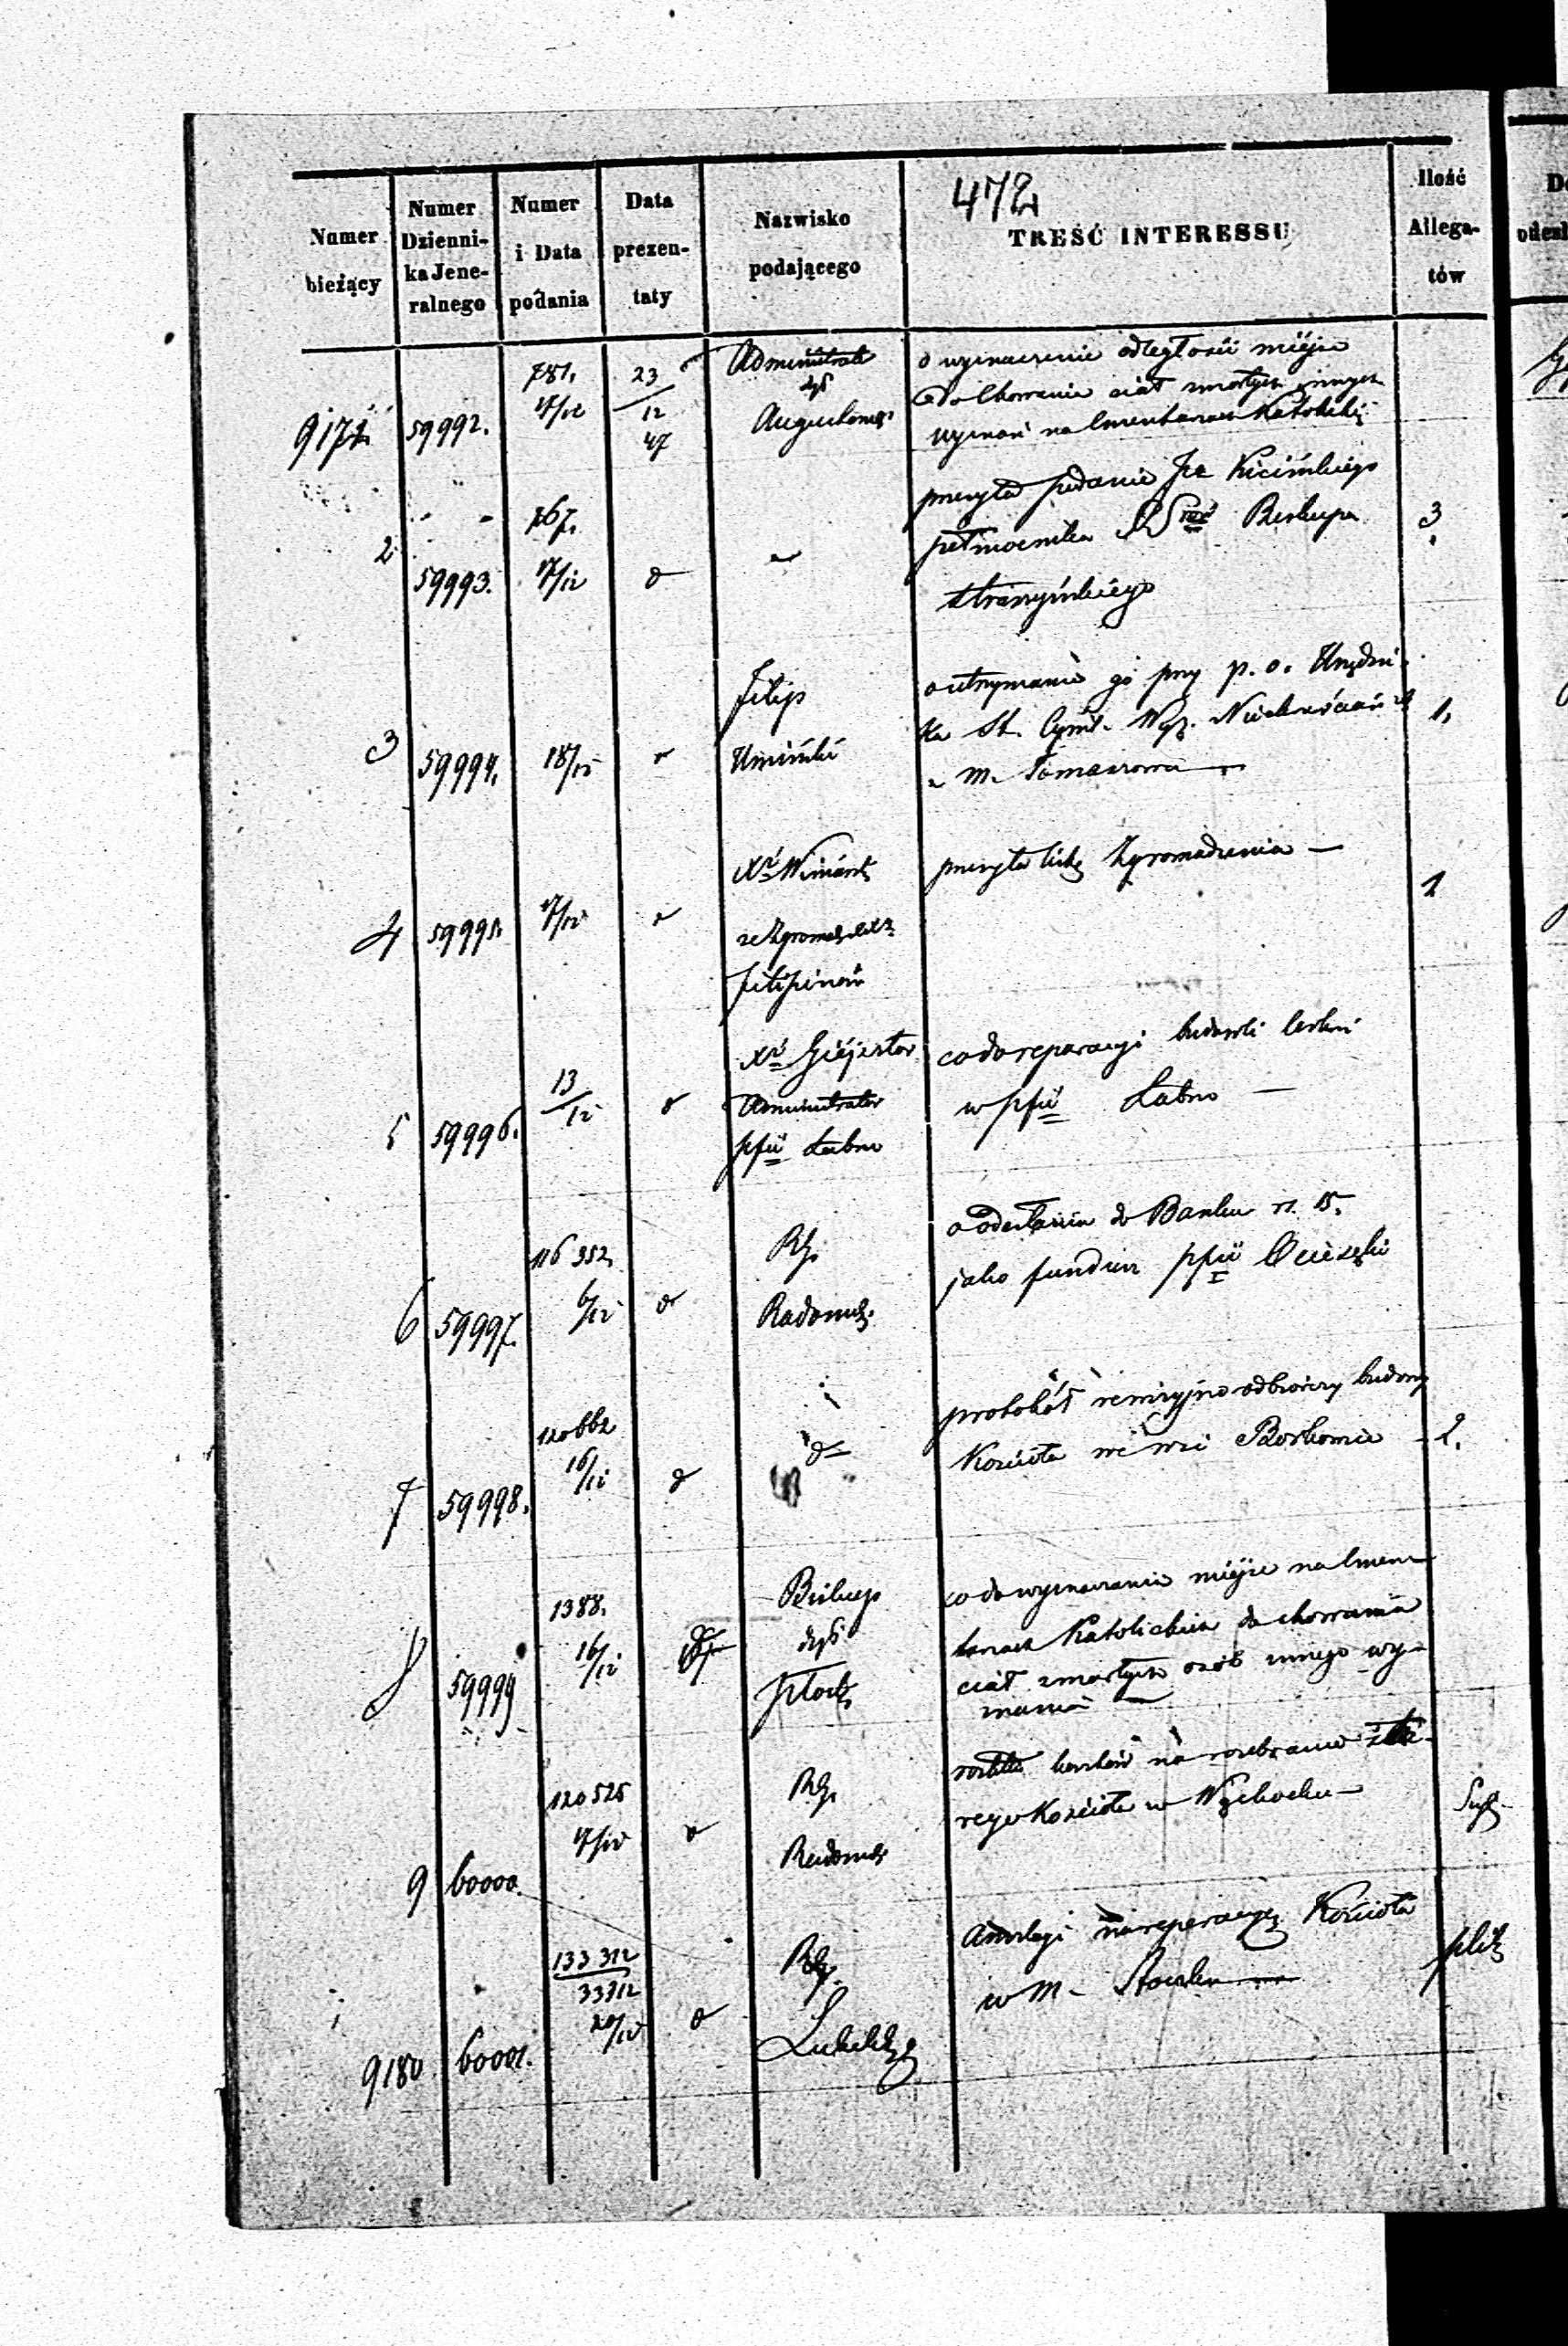 472
Numer bieżący
Numer Dzienni- ka Jene- ralnego
Numer i Data podania
Data prezen- taty
Nazwisko podającego
TREŚĆ INTERESSU
Ilość Allega- tów
9171 59992.
781. 17/12
23/12 47
Administrator
dyś
Augustows.
o wyznaczenie odległości miejsc
do chowania ciał zmarłych innych
wyznań na cmentarzach Katolicki
2 59993.
767. 17/12
przesyła podanie
pełnomocnika Biskupa
Straszyńskiego
3
3 59994.
18/12
Filip
Umiński
o utrzymanie go przy p. o. Urzędni-
ka St. Cywil. Wyz. Niechrześciań
w m. Tomaszowie
1.
4 59995.
17/12
Xdz
ze Zgromadz. XX
Filipinów
przesyła listę Zgromadzenia —
1
5 59996.
13/12
Xdz Giejsztor
Administrator
pfii Łabno
co do reparacyi budowli
w pfii Łabno —
6 59997.
116 352.
6/12
RG.
Radoms.
o odesłaniu do Banku rs. 15.
jako fundusz pfii Ociesęki
7 59998.
120662
16/12
do
protokół rewizyjno odbiorczy budowy
Kościoła we wsi Borkowie
2.
8 59999
1388.
16/12
Biskup
dyś
Płock
co do wyznaczania miejsc na cmen-
tarzach Katolickich do chowania
ciał zmarłych osób innego wy-
znania —
9 60000.
120 525
17/12
RG.
Radoms
kosztów na rozebranie sta-
rego Kościoła w Wąchocku —
9180 60001.
133 312
33312
20/12
RG.
Lubelsk
Anszlagi na reperacyę Kościoła
w m.
plik